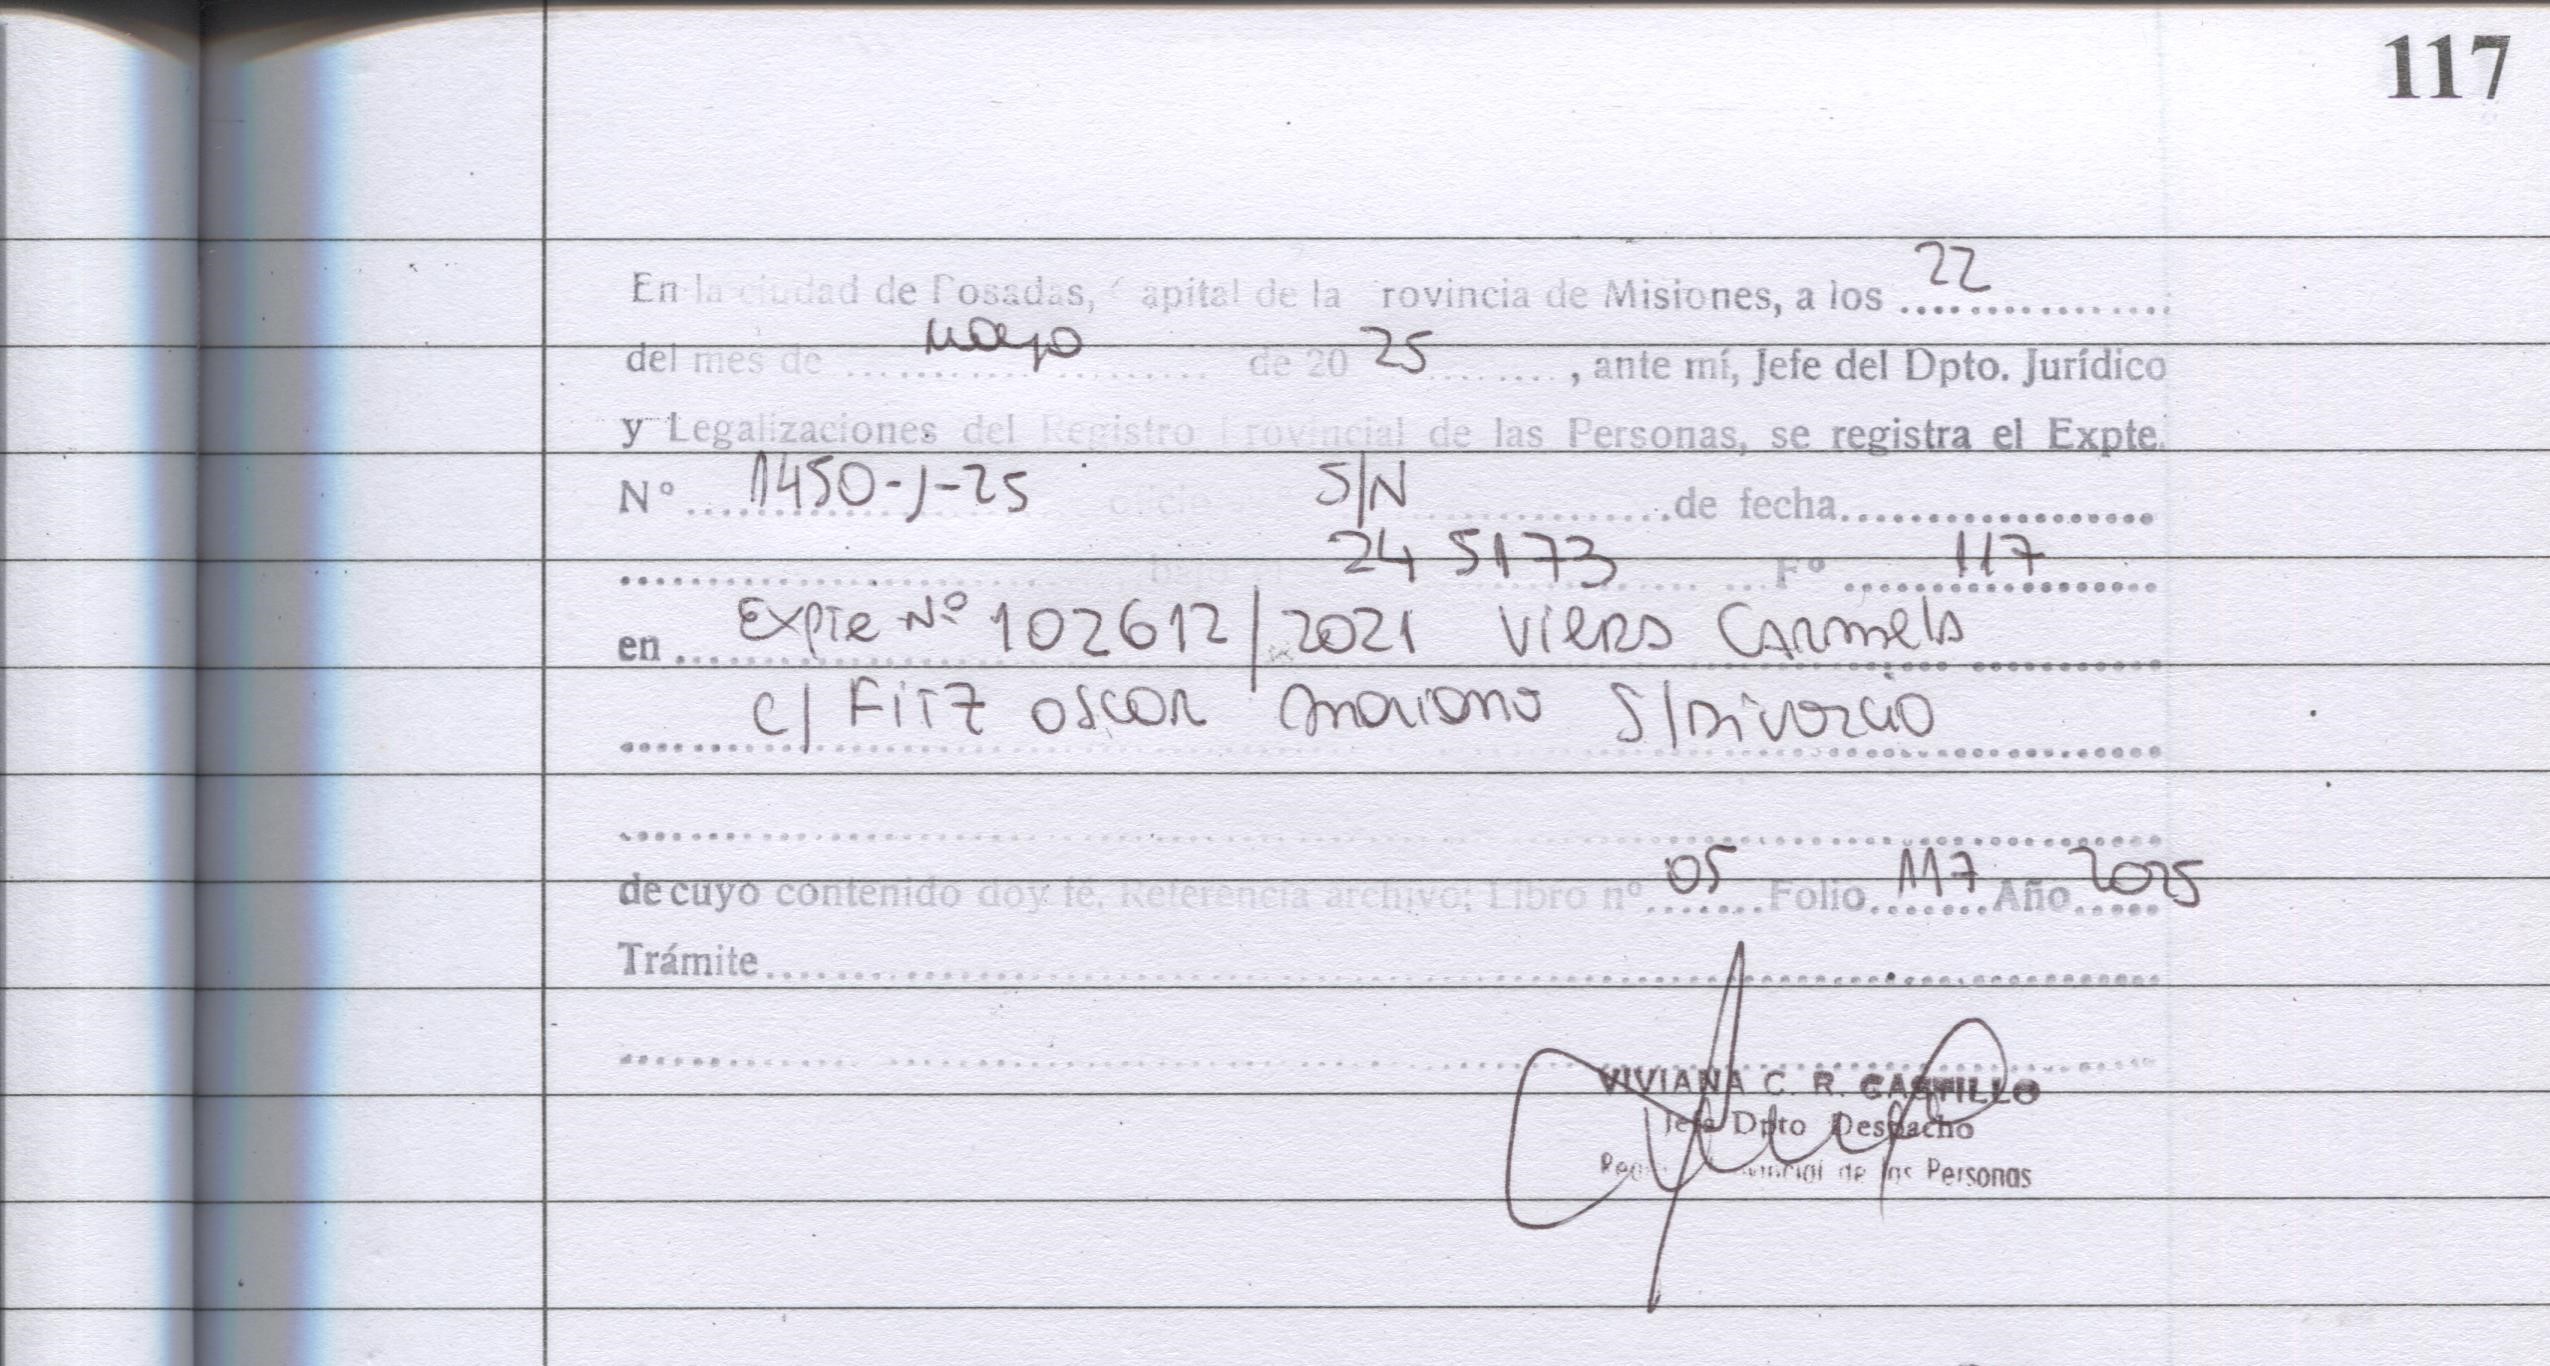 117
En la ciudad de Posadas, Capital de la Provincia de Misiones, a los 22
del mes de mayo de 20 25, ante mí, Jefe del Dpto. Jurídico
y Legalizaciones del Registro Provincial de las Personas, se registra el Expte.
Nº 1450-J-25 oficio S/N de fecha
245173 Fº 117
en Expte Nº 102612/2021 Viera Carmela
c/ Fitz oscar mariano S/Divorcio
de cuyo contenido doy fé. Referencia archivo; Libro nº 05 Folio 117 Año 2025
Trámite
VIVIANA C. R. CASTILLO
Jefe Dpto Despacho
Registro Provincial de las Personas